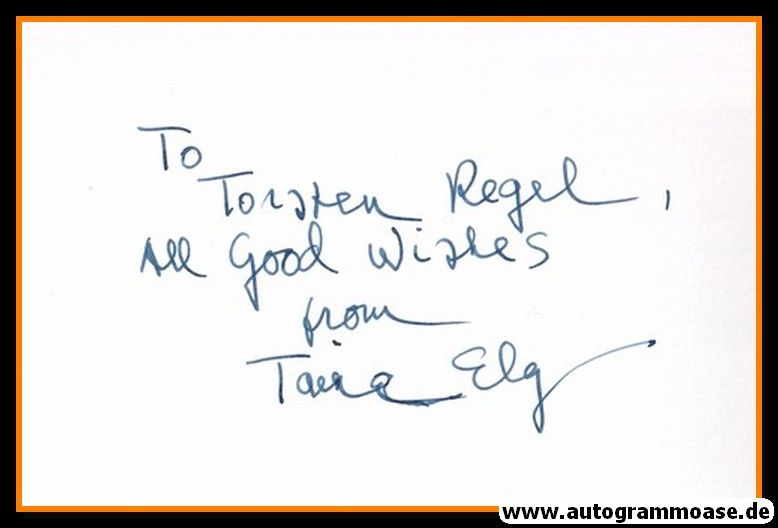 To
Torsten Regel,
All Good Wishes
from
Taina Elg
www.autogrammoase.de